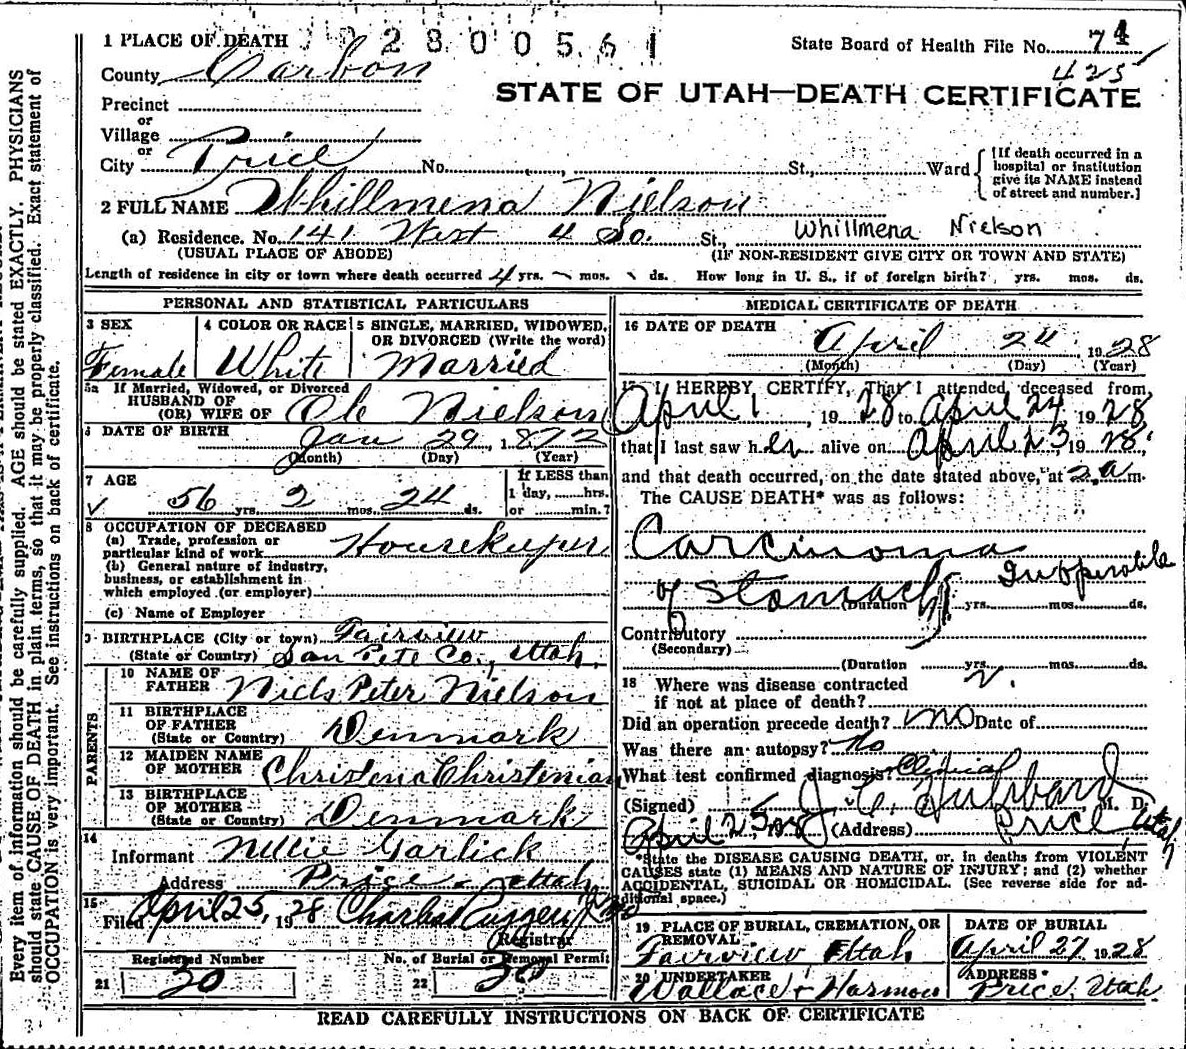 1 PLACE OF DEATH 92800561
State Board of Health File No. 74
425
County Carbon
STATE OF UTAH—DEATH CERTIFICATE
Precinct
or
Village
or
City Price No. St., Ward
[If death occurred in a hospital or institution give its NAME instead of street and number.]
2 FULL NAME Whillmena Nielson
(a) Residence. No. 141 West 4 So. St., Whillmena Nielson
(USUAL PLACE OF ABODE) (IF NON-RESIDENT GIVE CITY OR TOWN AND STATE)
Length of residence in city or town where death occurred 4 yrs. mos. ds. How long in U. S., if of foreign birth? yrs. mos. ds.
PERSONAL AND STATISTICAL PARTICULARS
3 SEX 4 COLOR OR RACE 5 SINGLE, MARRIED, WIDOWED,
OR DIVORCED (Write the word)
Female White Married
5a If Married, Widowed, or Divorced
HUSBAND OF
(OR) WIFE OF Ole Nielson
6 DATE OF BIRTH Jan 29, 1872
(Month) (Day) (Year)
7 AGE If LESS than
1 day, hrs.
56 yrs. 2 mos. 24 ds. or min.?
8 OCCUPATION OF DECEASED
(a) Trade, profession or
particular kind of work Housekeeper
(b) General nature of industry,
business, or establishment in
which employed (or employer)
(c) Name of Employer
9 BIRTHPLACE (City or town) Fairview
(State or Country) San Pete Co., Utah.
PARENTS
10 NAME OF
FATHER Niels Peter Nielson
11 BIRTHPLACE
OF FATHER
(State or Country) Denmark
12 MAIDEN NAME
OF MOTHER Christena Christenian
13 BIRTHPLACE
OF MOTHER
(State or Country) Denmark
14
Informant Nellie Garlick
Address Price Utah
15
Filed April 25, 1928 Charles Ruggery
Registrar
Registered Number No. of Burial or Removal Permit
21 30 22 30
MEDICAL CERTIFICATE OF DEATH
16 DATE OF DEATH
April 24 1928
(Month) (Day) (Year)
17 I HEREBY CERTIFY, That I attended deceased from
April 1, 1928 to April 24 1928
that I last saw her alive on April 23, 1928.
and that death occurred, on the date stated above, at 2 a.m.
The CAUSE DEATH* was as follows:
Carcinoma
of Stomach Inoperable
(Duration yrs. mos. ds.
Contributory
(Secondary)
(Duration yrs. mos. ds.
18 Where was disease contracted
if not at place of death?
Did an operation precede death? No Date of
Was there an autopsy? No
What test confirmed diagnosis? Clinical
(Signed) J. C. Hubbard M. D.
April 25 1928 (Address) Price Utah
*State the DISEASE CAUSING DEATH, or, in deaths from VIOLENT
CAUSES state (1) MEANS AND NATURE OF INJURY; and (2) whether
ACCIDENTAL, SUICIDAL OR HOMICIDAL. (See reverse side for ad-
ditional space.)
19 PLACE OF BURIAL, CREMATION, OR
REMOVAL DATE OF BURIAL
Fairview Utah April 27 1928
20 UNDERTAKER ADDRESS
Wallace & Harmon Price, Utah
READ CAREFULLY INSTRUCTIONS ON BACK OF CERTIFICATE
Every item of information should be carefully supplied. AGE should be stated EXACTLY. PHYSICIANS
should state CAUSE OF DEATH in plain terms, so that it may be properly classified. Exact statement of
OCCUPATION is very important. See instructions on back of certificate.